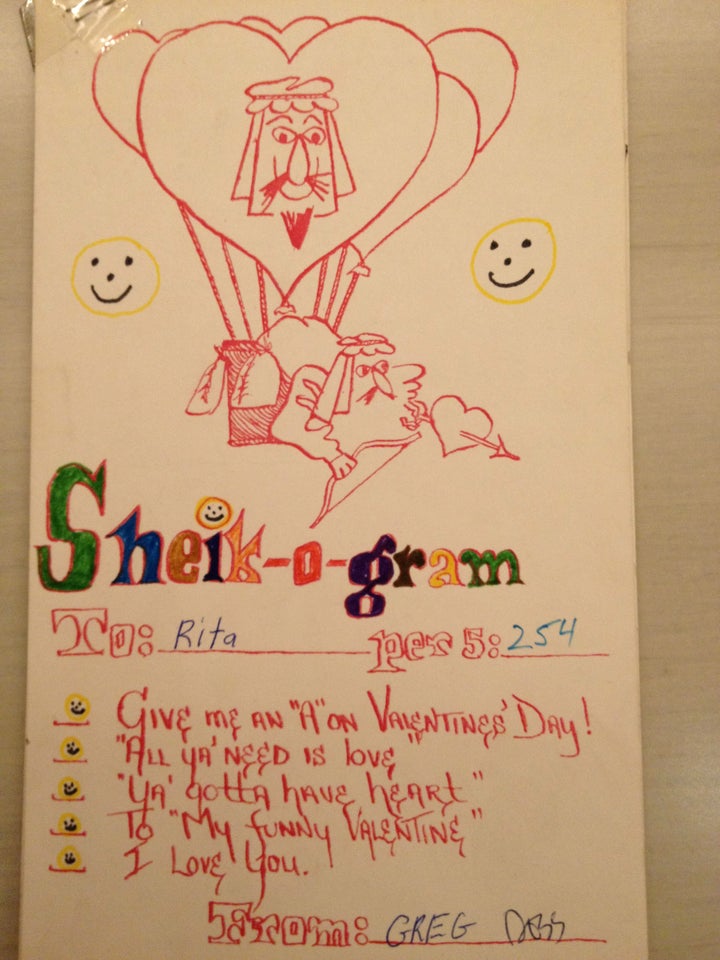 Sheik-o-gram
To: Rita per 5: 254
Give me an "A" on Valentines' Day!
"All ya' need is love"
"Ya' gotta have heart"
To "My funny Valentine"
I Love You.
From: GREG